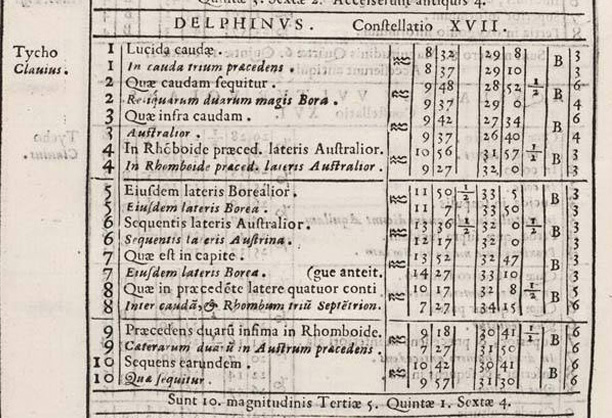 DELPHINVS. Constellatio XVII.
Tycho 1 Lucida caudæ. ♒ 8 32 29 8 B 3
Clauius. 1 In cauda trium præcedens. 8 37 29 10 3
2 Quæ caudam sequitur. ♒ 9 48 28 52 ½ B 6
2 Reliquarum duarum magis Borea. 9 37 29 0 4
3 Quæ infra caudam. ♒ 9 42 27 34 B 6
3 Australior. 9 37 26 40 4
4 In Rhōboide præced. lateris Australior. ♒ 10 56 31 57 ½ B 3
4 In Rhomboide præced. lateris Australior. 9 27 32 0 3
5 Eiusdem lateris Borealior. ♒ 11 50 ½ 33 5 B 3
5 Eiusdem lateris Borea. 11 7 33 50 3
6 Sequentis lateris Australior. ♒ 13 36 ½ 32 0 ½ B 3
6 Sequentis lateris Austrina. 12 17 32 0 3
7 Quæ est in capite. ♒ 13 52 32 47 B 3
7 Eiusdem lateris Borea. (gue anteit. 14 27 33 10 3
8 Quæ in præcedēte latere quatuor conti ♒ 10 17 32 8 ½ B 5
8 Inter caudā, & Rhombum triū Septētrion. 7 27 34 15 6
9 Præcedens duarū infima in Rhomboide. ♒ 9 18 30 41 ½ B 6
9 Cæterarum duarū in Austrum præcedens. 7 27 31 50 6
10 Sequens earundem. ♒ 10 42 30 41 B 6
10 Quæ sequitur. 9 57 31 30 6
Sunt 10. magnitudinis Tertiæ 5. Quintæ 1. Sextæ 4.